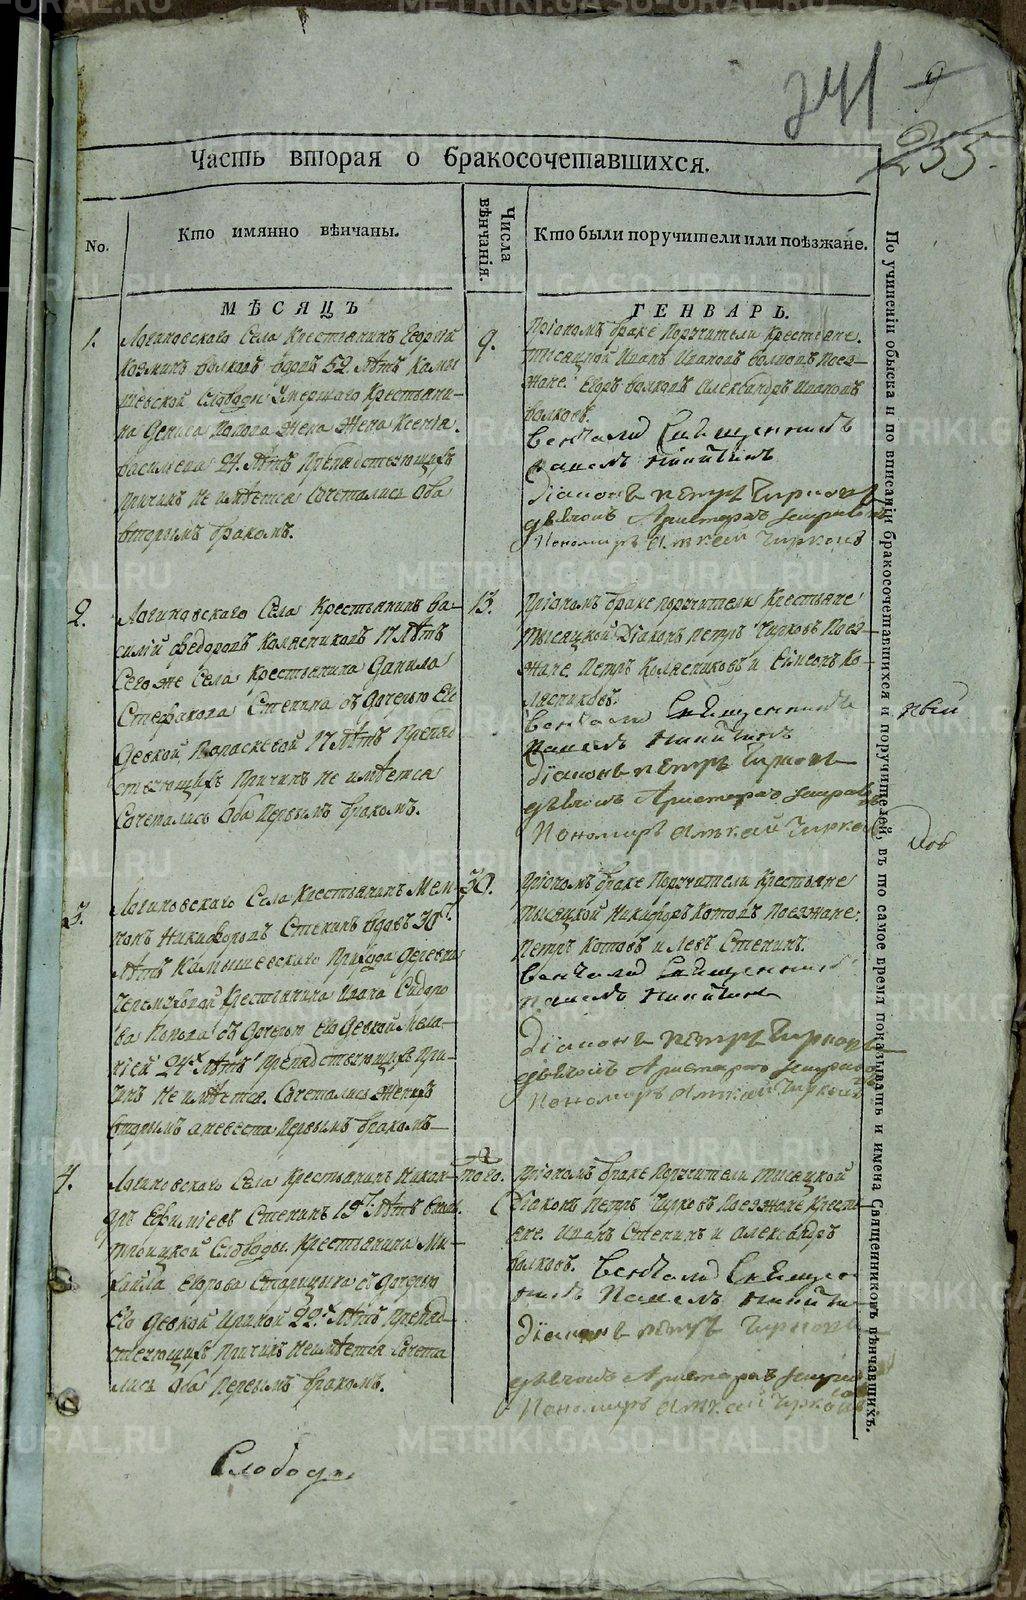 241
255.
Часть вторая о бракосочетавшихся.
No.
Кто имянно вѣнчаны.
Числа вѣнчанія.
Кто были поручители или поѣзжане.
МѢСЯЦЪ
ГЕНВАРЬ.
1.
Логиновскаго Села Крестьянинъ Георгій
Козминъ Волковъ вдовъ 52 лѣтъ Камы
шевской Слободы Умершаго Крестьяни-
на Дениса Попова Жена Жена Ксенія
Васильева 27. лѣтъ Препядствующихъ
Причинъ не имѣется Сочетались Оба
вторымъ бракомъ.
9.
При ономъ браке Поручители Крестьяне.
тысяцкой Иванъ Ивановъ Волковъ Поез-
жане. Егоръ Волковъ Александръ Ивановъ
Волковъ.
венчали Священникъ
Павелъ Никитинъ
Діаконъ Петръ Чирковъ
дьячокъ Аристархъ
Пономарь Алексей Чирковъ
2.
Логиновскаго Села Крестьянинъ Ва-
силій Федоровъ Колясниковъ 17 лѣтъ
Сего же Села Крестьянина Данила
Стефанова Степина съ дочерью Ею
Девкой Параскевой 17 лѣтъ Препяд
ствующихъ Причинъ не имѣется
Сочетались Оба Первымъ бракомъ.
13.
При ономъ браке поручители Крестьяне
Тысяцкой Діаконъ Петръ Чирковъ Поез-
жане. Петръ Колясниковъ и Симеонъ Ко-
лясниковъ.
венчали Священникъ
Павелъ Никитинъ
Діаконъ Петръ Чирковъ
дьячокъ Аристархъ
Пономарь Алексей Чирковъ
3.
Логиновскаго Села Крестьянинъ Мем-
нонъ Никифоровъ Степинъ вдовъ 30
лѣтъ Камышевскаго Прихода деревни
Черемховой Крестьянина Ивана Сидоро
ва Попова съ дочерью Его Девкой Мела-
ніей 24 лѣтъ Препядствующихъ При-
чинъ не имѣется. Сочетались Женихъ
вторымъ а невеста Первымъ бракомъ
30.
При ономъ браке Поручители Крестьяне
тысяцкой Никифоръ Котовъ Поезжане:
Петръ Котовъ и Левъ Степинъ.
венчали Священникъ
Павелъ Никитинъ
Діаконъ Петръ Чирковъ
дьячокъ Аристархъ
Пономарь Алексей Чирковъ
4.
Логиновскаго Села Крестьянинъ Никан-
дръ Ефимиевъ Степинъ 19 лѣтъ
троицкой Слободы. Крестьянина Ми-
хайла Егорова Старицына съ дочерью
Его Девкой Ириной 22 лѣтъ Препяд
ствующихъ Причинъ неимѣется Сочета
лись Оба Первымъ бракомъ.
того.
При ономъ браке Поручители тысяцкой
Діаконъ Петръ Чирковъ Поезжане Кресть-
яне. Иванъ Степинъ и Александръ
Волковъ. венчали Священ
никъ Павелъ Никитин
Діаконъ Петръ Чирковъ
дьячокъ Аристархъ
Пономарь Алексей Чирковъ
Слободы
По учиненіи обыска и по вписаніи бракосочетавшихся и поручителей, въ то самое время показывать и имена Священниковъ вѣнчавшихъ.
METRIKI.GASO-URAL.RU